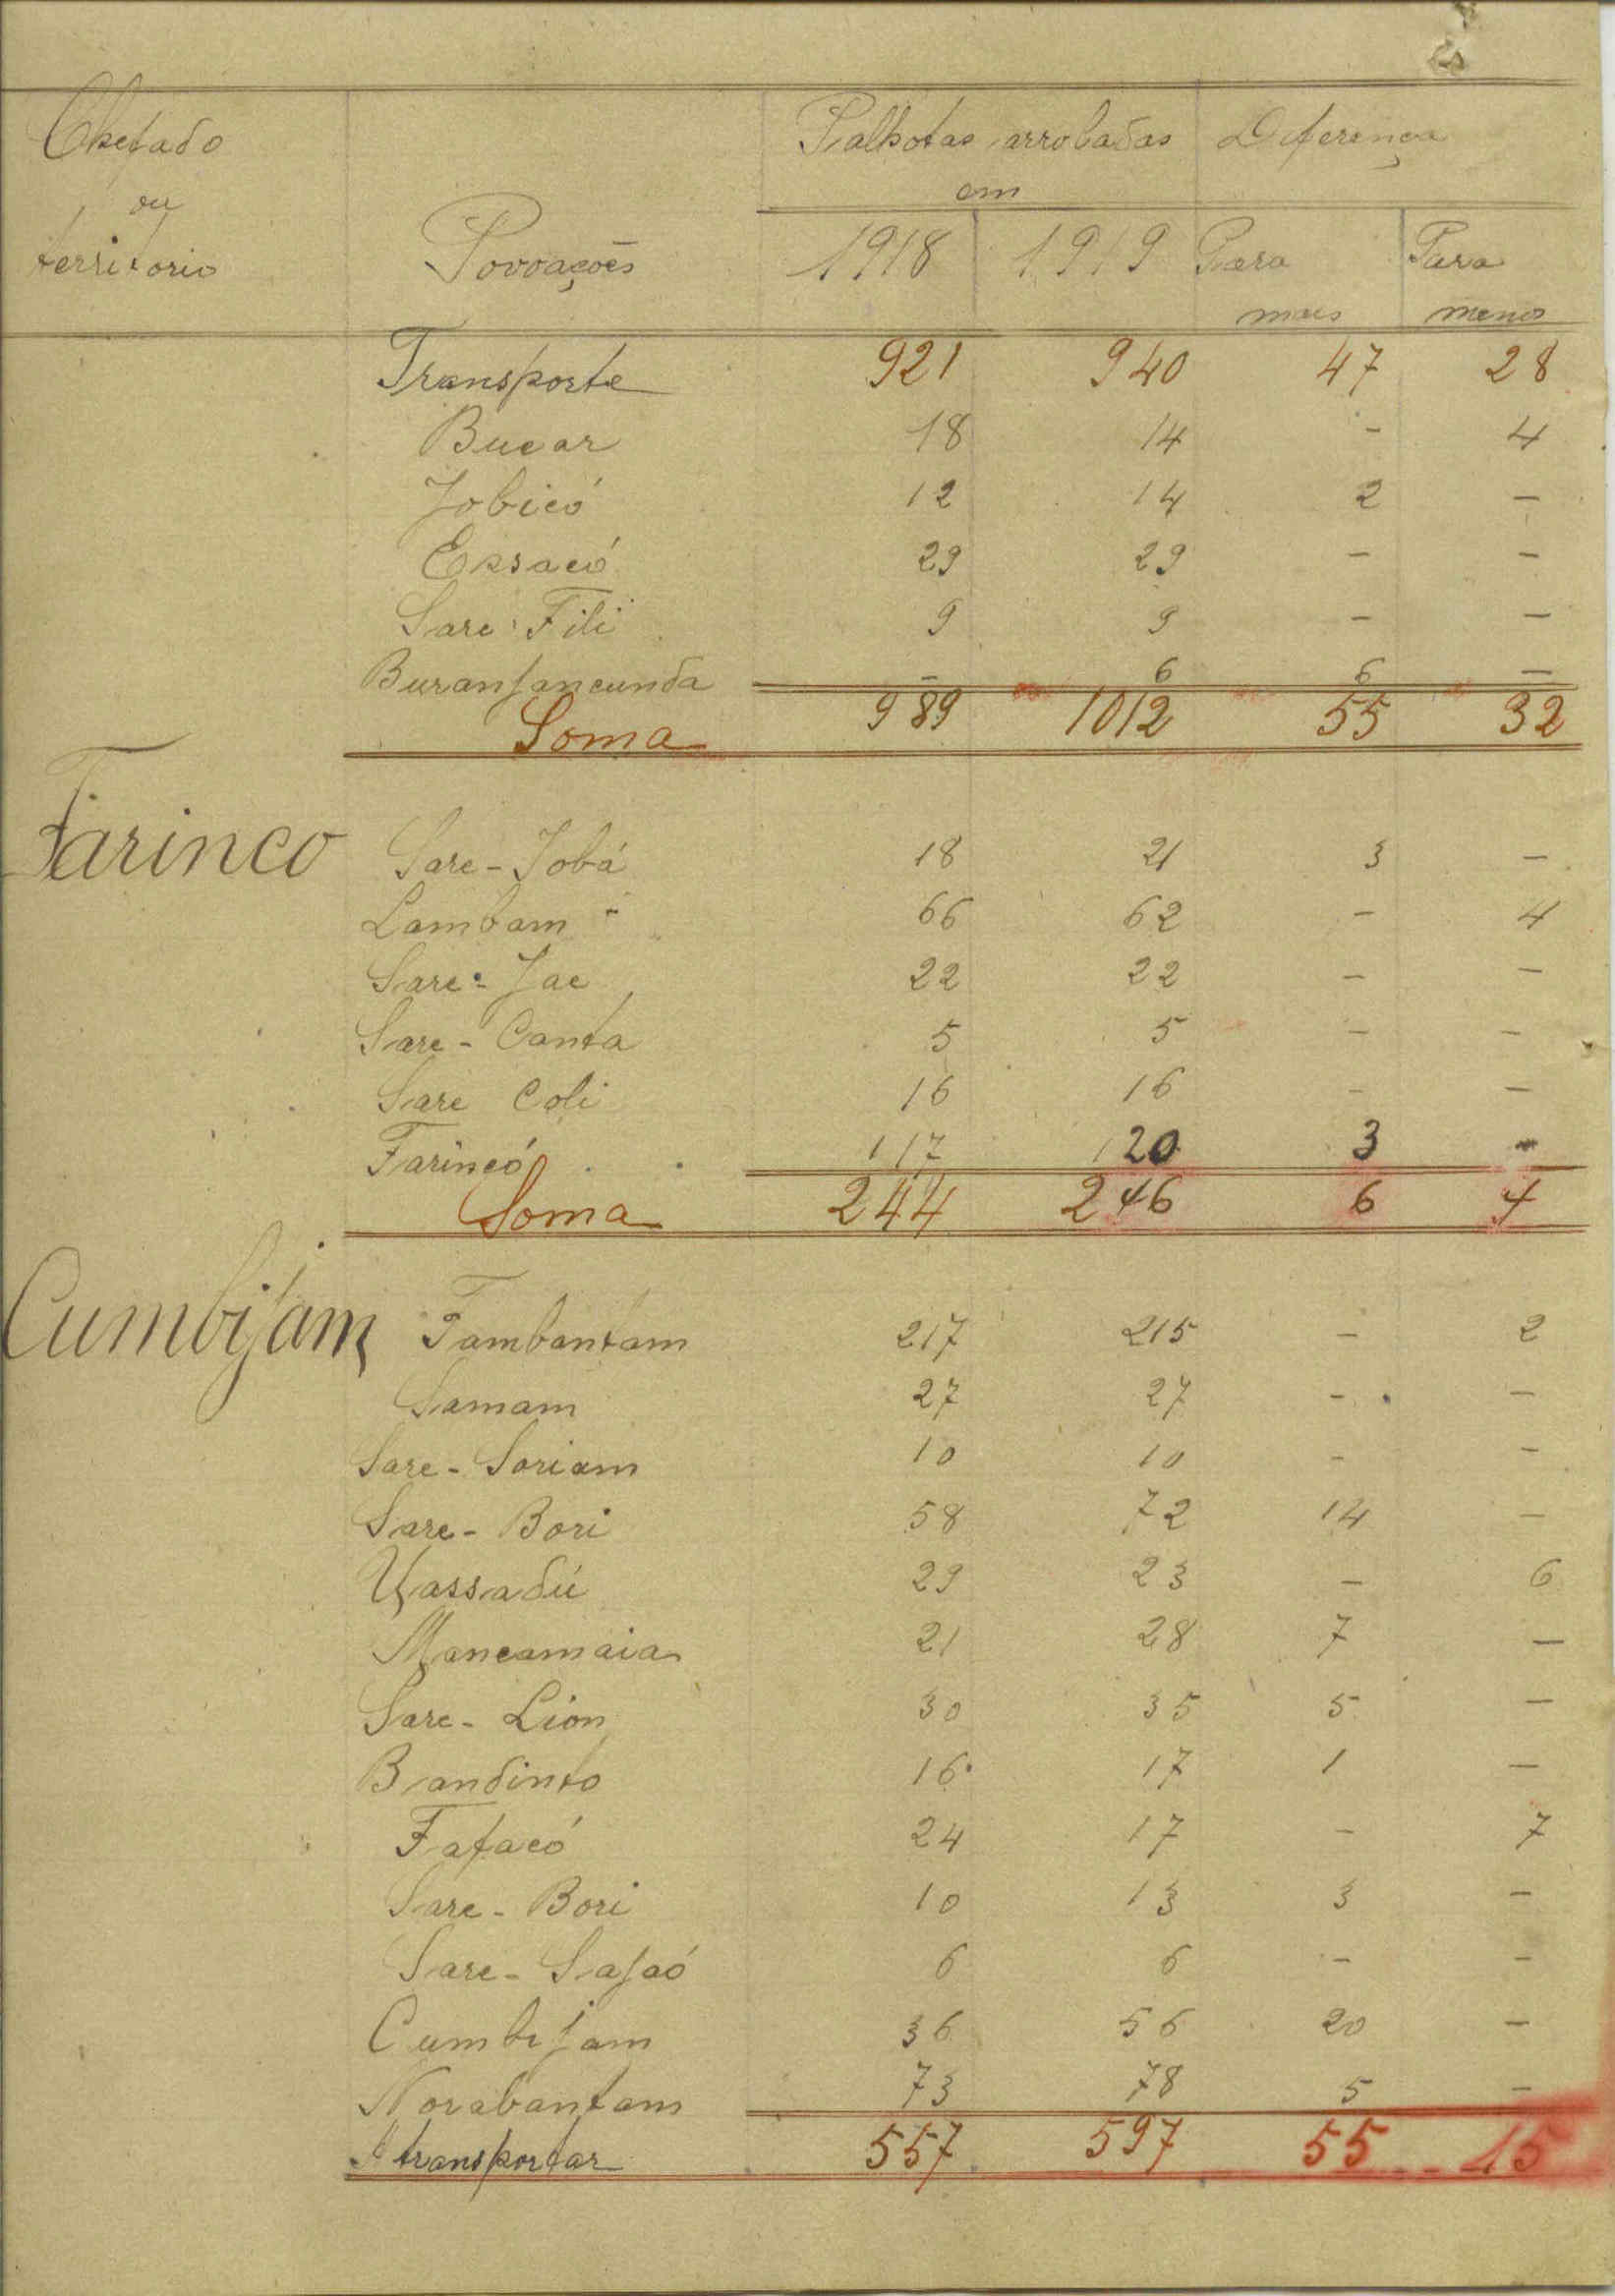 Chefado
ou
territorio
Povoações
Palhotas arroladas
em
Diferença
1918 1919 Para mais Para menos
Transporte 921 940 47 28
Bucar 18 14 - 4
Jobicó 12 14 2 -
29 29 - -
Sare-Fili 9 9 - -
Buranjancunda - 6 6 -
Soma 989 1012 55 32
Farinco Sare-Jobá 18 21 3 -
Lambam 66 62 - 4
Sare-Jae 22 22 - -
Sare-Canta 5 5 - -
Sare Coli 16 16 - -
Farincó 117 120 3 -
Soma 244 246 6 4
Cumbijam Tambantam 217 215 - 2
Samam 27 27 - -
Sare-Soriam 10 10 - -
Sare-Bori 58 72 14 -
29 23 - 6
Mancamaia 21 28 7 -
Sare-Lion 30 35 5 -
Bandinto 16 17 1 -
Fafacó 24 17 - 7
Sare-Bori 10 13 3 -
Sare-Sajaó 6 6 - -
Cumbijam 36 56 20 -
Norabantam 73 78 5 -
A transportar 557 597 55 15